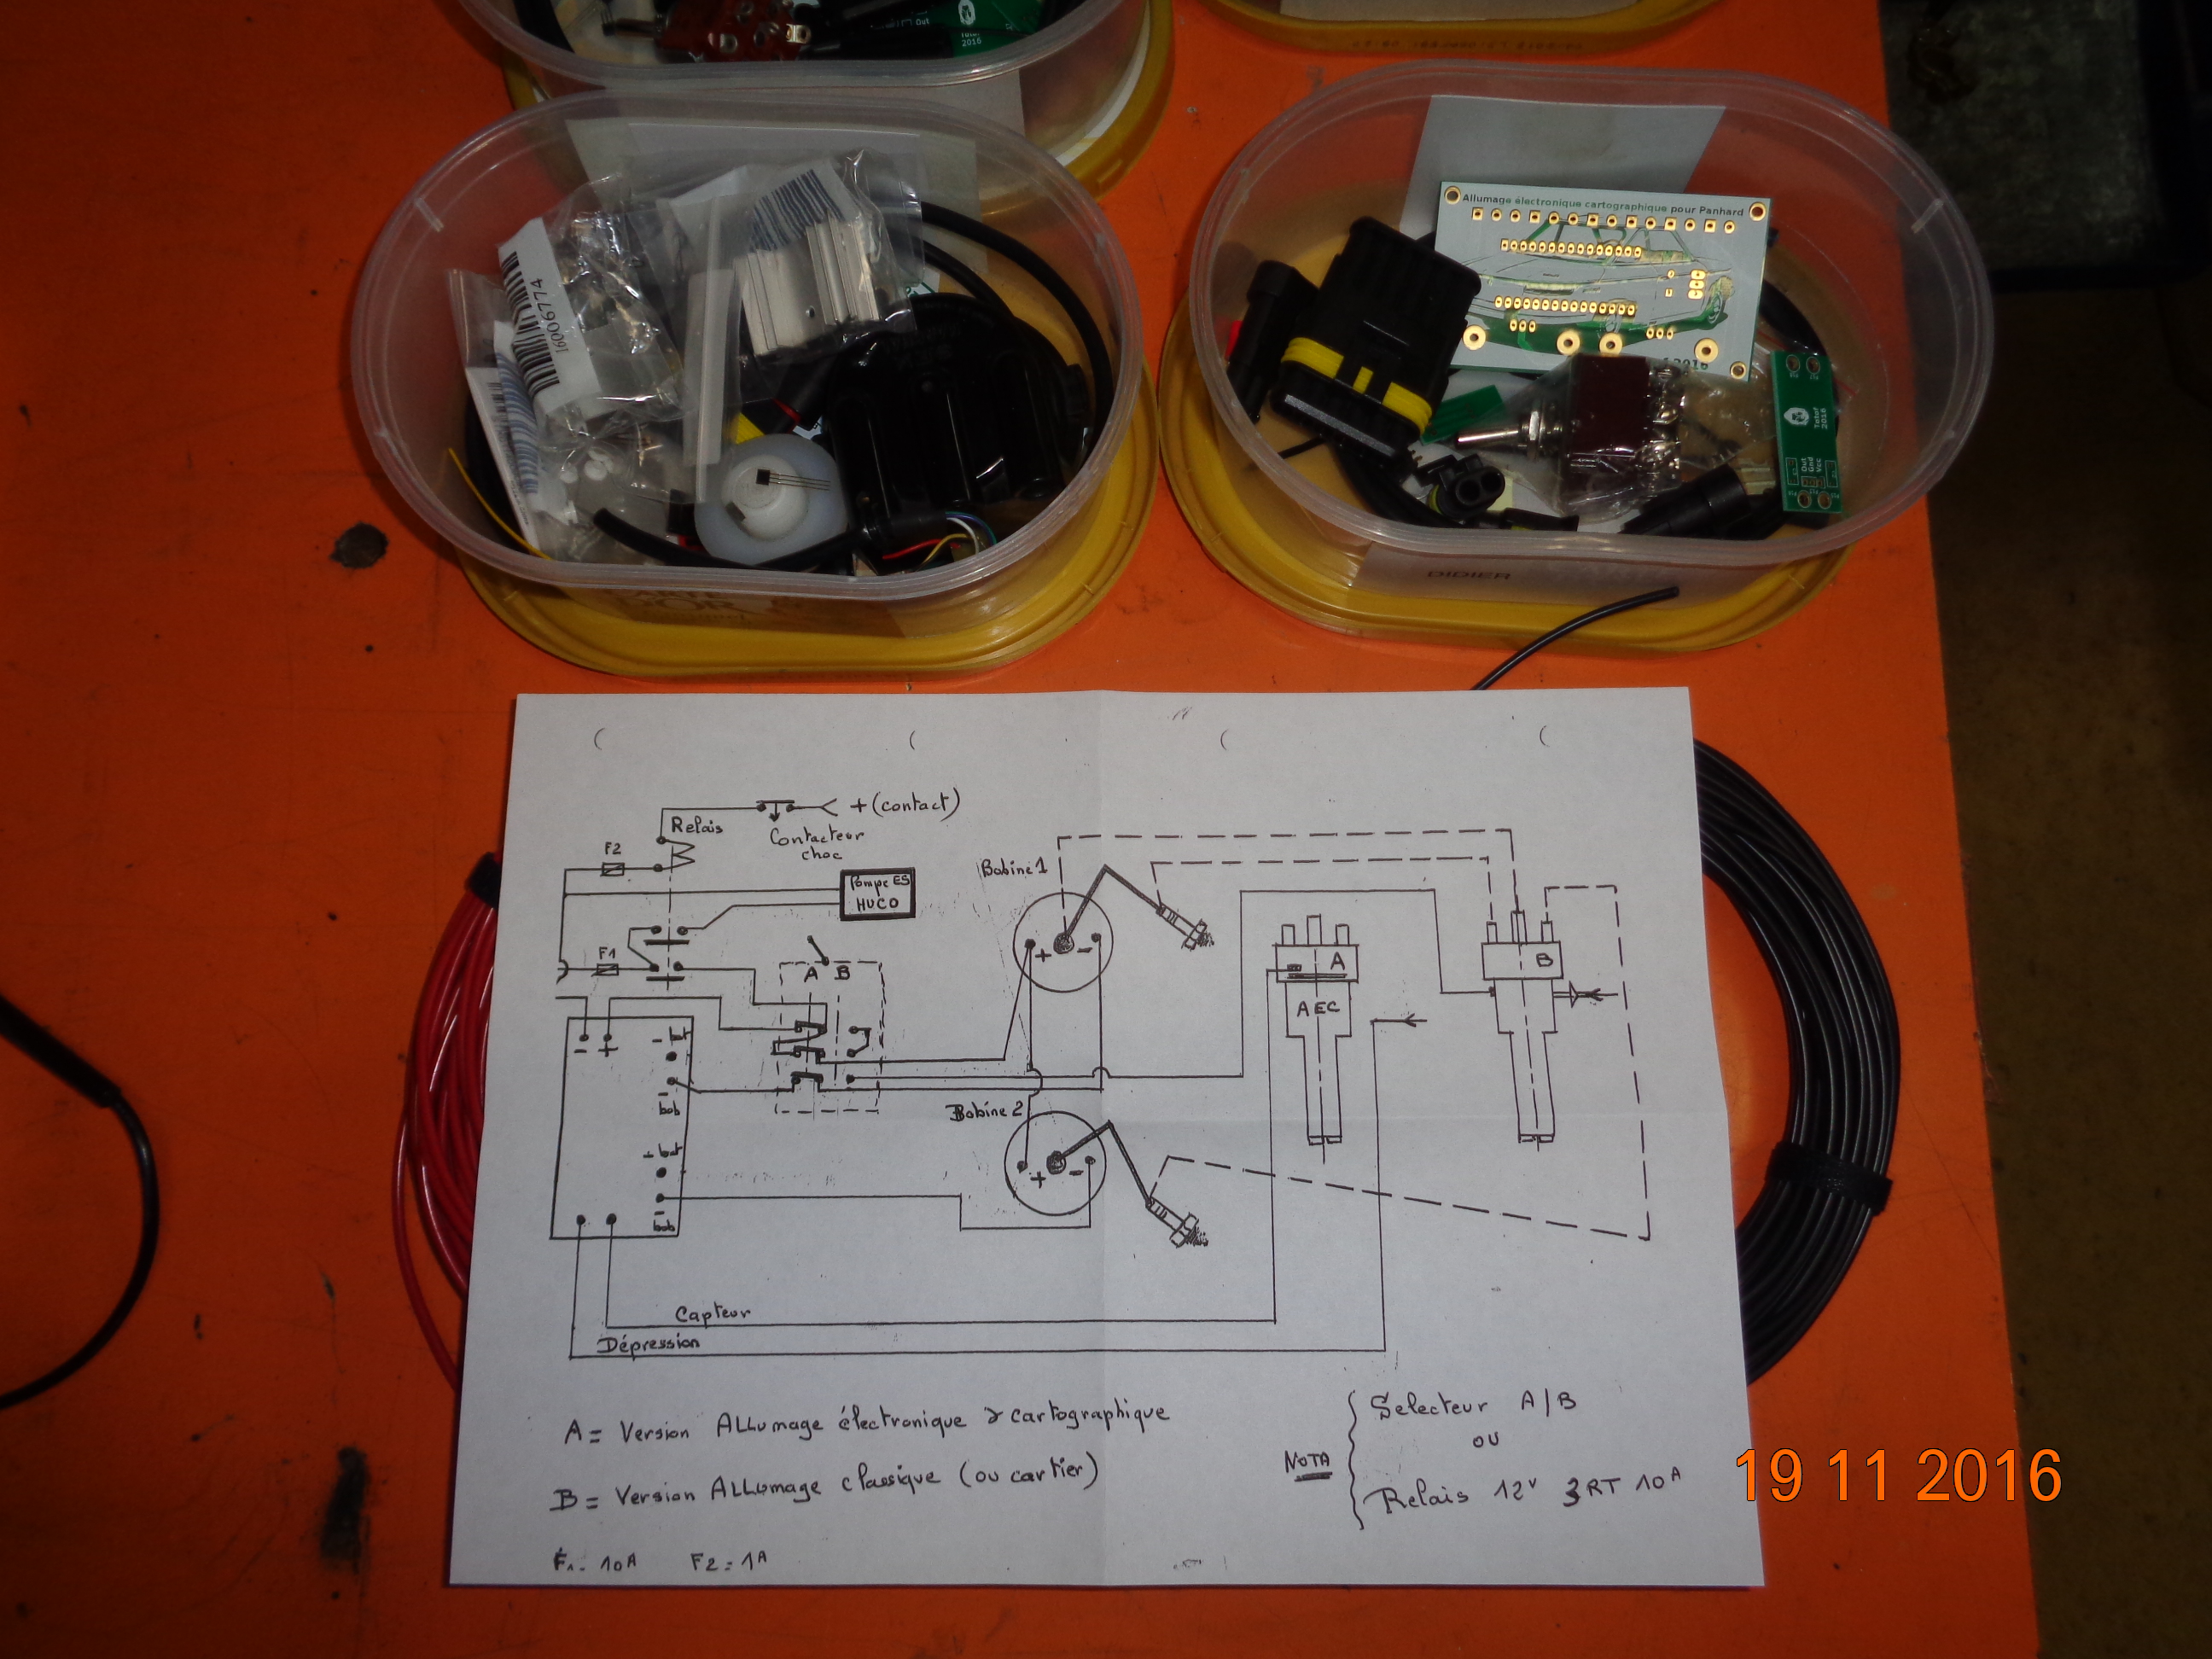 Out
Tetof
2016
16006774
Allumage électronique cartographique pour Panhard
2016
Tetof
2016
Out
Gnd
Vcc
D'OR
DIDIER
+ (contact)
Relais
Contacteur
choc
F2
Pompe ES
HUCO
F1
A B
Bobine 1
+ -
A
AEC
B
- +
- bat
- bob
Bobine 2
+ -
+ bat
- bob
Capteur
Dépression
A = Version ALLumage électronique & cartographique
B = Version ALLumage classique (ou cartier)
F1 = 10A F2 = 1A
NOTA
Selecteur A/B
ou
Relais 12V 3RT 10A
19 11 2016